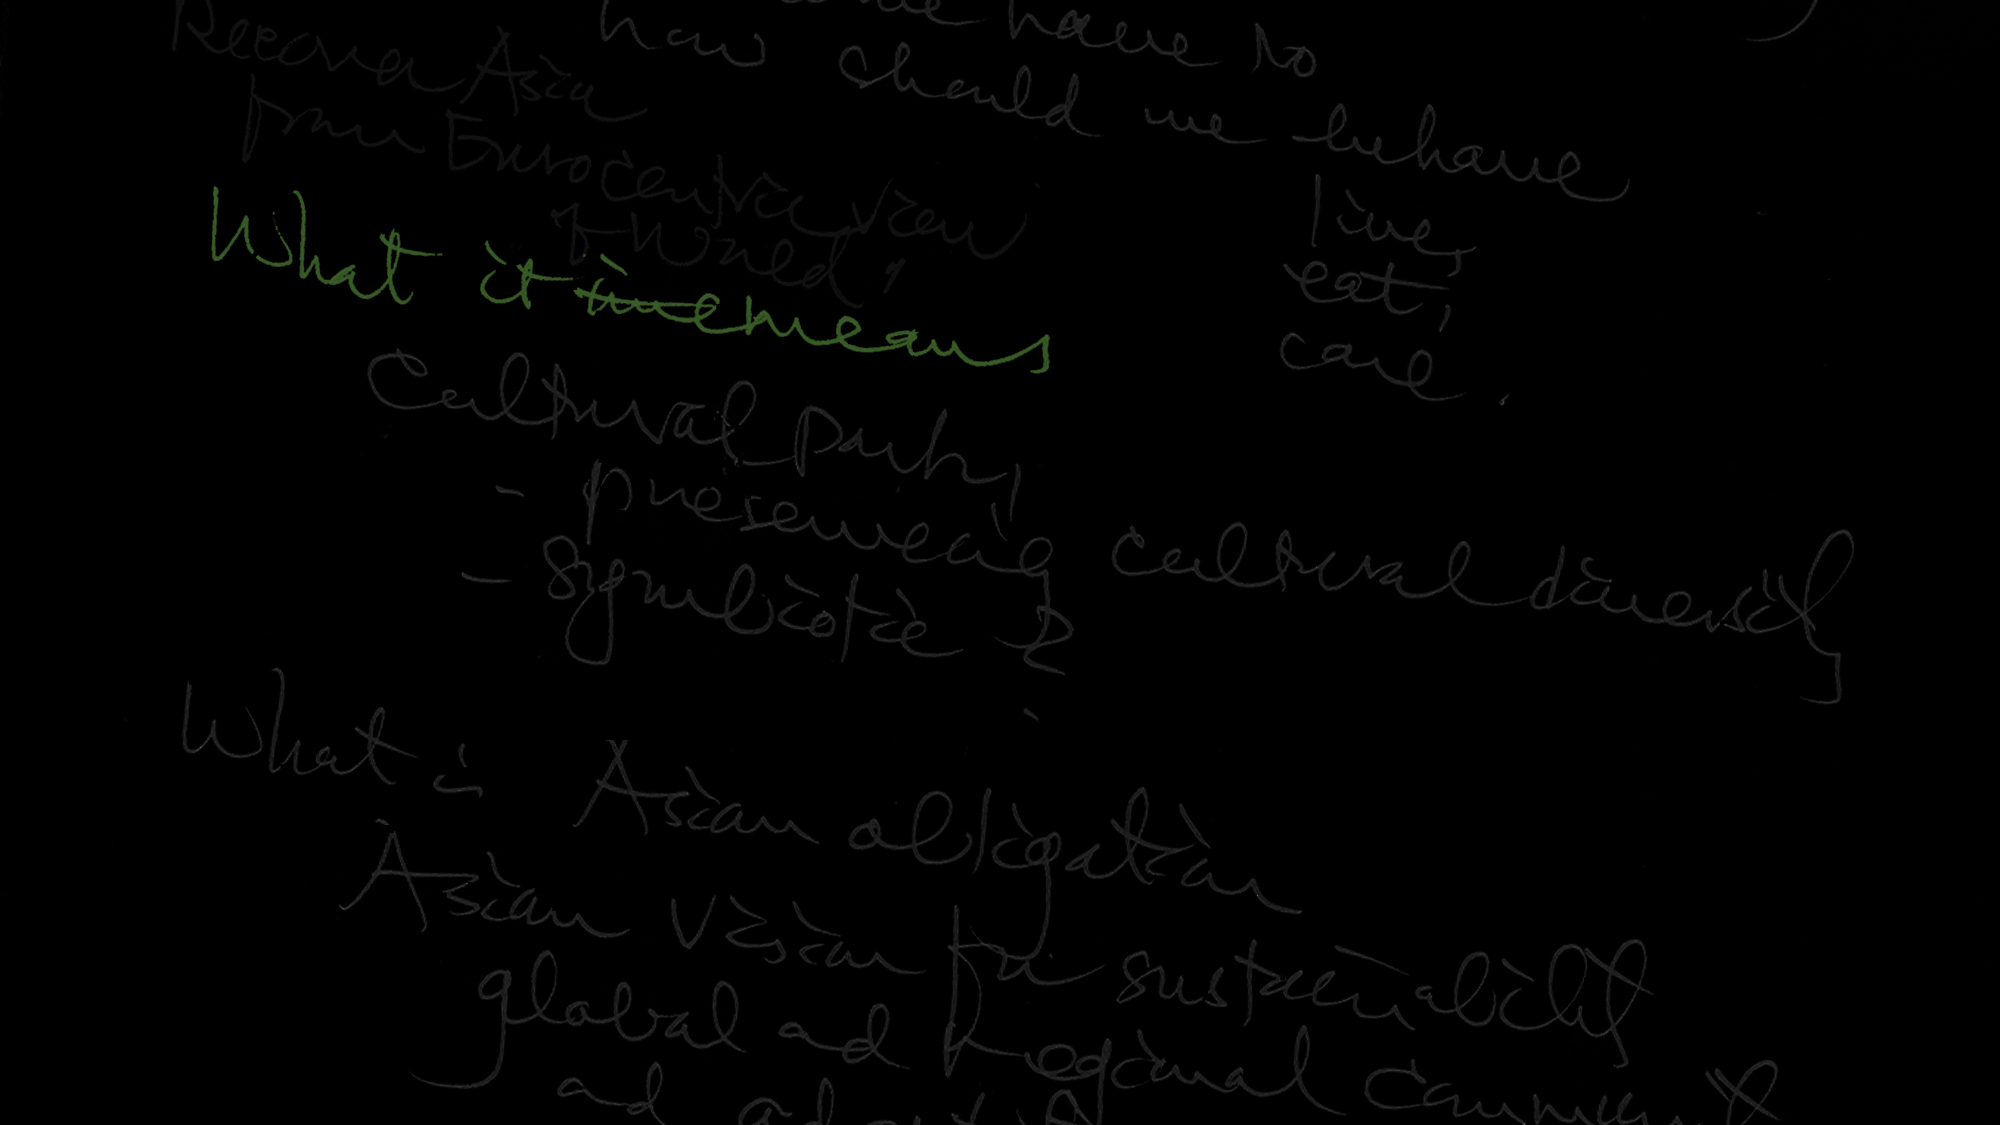 have no
how should we behave
live,
eat,
care.
Recover Asia
from Eurocentric view
of World?
What it means
Cultural parity,
- preserving cultural diversity
- symbiotic ?
What is Asian obligation
Asian vision for sustainability
global and Regional
and